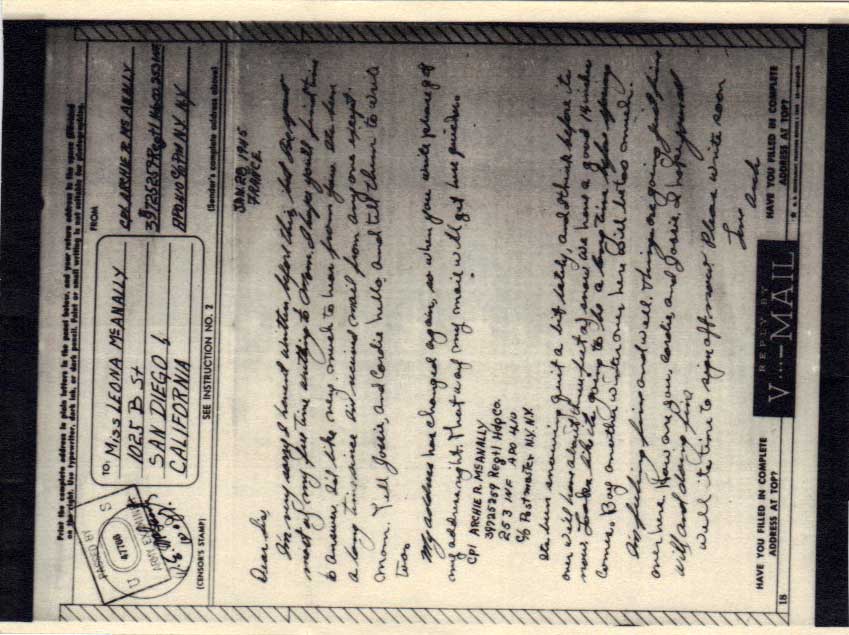 Print the complete address in plain letters in the panel below, and your return address in the space provided
on the right. Use typewriter, dark ink, or dark pencil. Faint or small writing is not suitable for photographing.
PASSED BY
U S
47700
ARMY EXAMINER
(CENSOR'S STAMP)
TO: MISS LEONA McANALLY
1025 B St
SAN DIEGO 1
CALIFORNIA
SEE INSTRUCTION NO. 2
FROM
Cpl ARCHIE R. McANALLY
39725259 Regt'l Hq Co. 253 INF
APO 410 % PM N.Y. N.Y.
(Sender's complete address above)
JAN. 28, 1945
FRANCE
Dear Sis,
I'm very sorry I havent written before this, but I've spent
most of my free time writing to Mom. I hope you'll find time
to answer. I'd like very much to hear from you. Its been
a long time since I've received mail from anyone except
Mom. Tell Jossie, and Cordie hello and tell them to write
too.
My address has changed again, so when you write please get
my address right. That way my mail will get here quicker.
Cpl ARCHIE R. McANALLY
39725259 Regt'l Hdq Co.
253 INF APO 410
% Postmaster N.Y. N.Y.
Its been snowing quit a bit lately, and I think before its
over will have about three feet of snow. We have a good 18 inches
now. Looks like its going to be a long time before spring
comes. Boy another winter over here will be too much.
I'm feeling fine and well. Things are going just fine
over here. How are you, Cordie, and Jossie. I hope your
well and doing fine
Well its time to sign off now. Please write soon
Love
HAVE YOU FILLED IN COMPLETE
ADDRESS AT TOP?
REPLY BY
V···-MAIL
HAVE YOU FILLED IN COMPLETE
ADDRESS AT TOP?
18